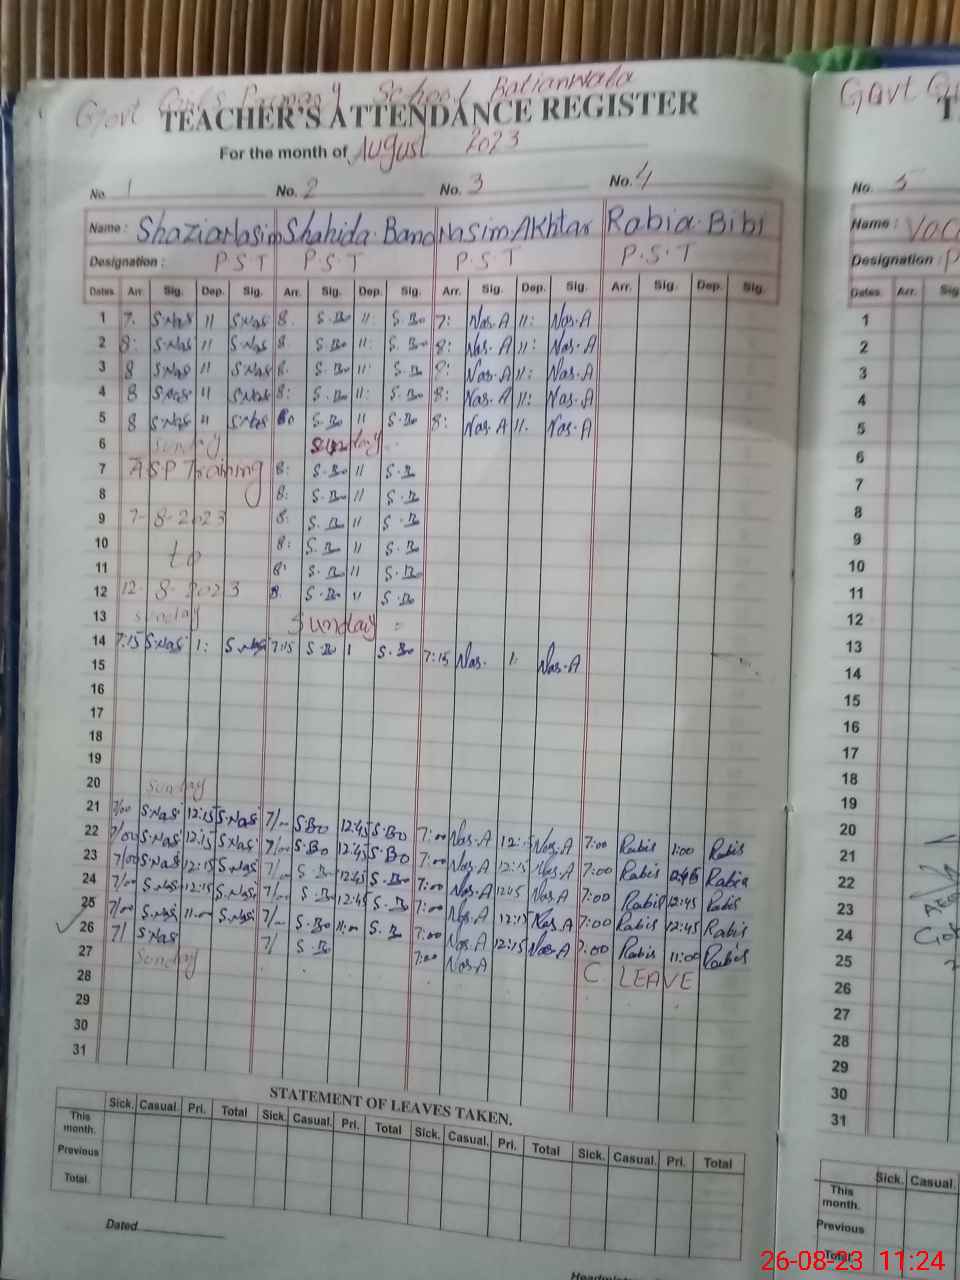 Govt Girls Primary School Ratianwala
TEACHER'S ATTENDANCE REGISTER
For the month of August 2023
No. 1 No. 2 No. 3 No. 4
Name : Shazia Nasim Shahida Bano Nasim Akhtar Rabia Bibi
Designation : P.S.T P.S.T P.S.T P.S.T
Dates Arr. Sig. Dep. Sig. Arr. Sig. Dep. Sig. Arr. Sig. Dep. Sig. Arr. Sig. Dep. Sig.
1 7. S.Nas 11 S.Nas 8. S.Bo 11: S.Bo 7: Nas.A 11: Nas.A
2 8: S.Nas 11 S.Nas 8. S.Bo 11: S.Bo 8: Nas.A 11: Nas.A
3 8 S.Nas 11 S.Nas 8: S.Bo 11: S.Bo 8: Nas.A 11: Nas.A
4 8 S.Nas 11 S.Nas 8: S.Bo 11: S.Bo 8: Nas.A 11: Nas.A
5 8 S.Nas 11 S.Nas S.Bo 11 S.Bo 8: Nas.A 11. Nas.A
6 Sunday Sunday
7 ASP Training 8: S.Bo 11 S.B
8 8: S.Bo 11 S.B
9 7-8-2023 8: S.Bo 11 S.B
10 to 8: S.Bo 11 S.Bo
11 8: S.Bo 11 S.Bo
12 12-8-2023 8. S.Bo 11 S.Bo
13 Sunday Sunday =
14 7:15 S.Nas 1: S.Nas 7:15 S.Bo 1 S.Bo 7:15 Nas. 1: Nas.A
15
16
17
18
19
20 Sunday
21 7/00 S.Nas 12:15 S.Nas 7/00 S.Bo 12:45 S.Bo 7:00 Nas.A 12: Nas.A 7:00 Rabis 1:00 Rabis
22 7/00 S.Nas 12:15 S.Nas 7/00 S.Bo 12:45 S.Bo 7:00 Nas.A 12:15 Nas.A 7:00 Rabis 12:45 Rabia
23 7/00 S.Nas 12:15 S.Nas 7/ S.Bo 12:45 S.Bo 7:00 Nas.A 12:15 Nas.A 7:00 Rabis 12:45 Rabis
24 7/00 S.Nas 12:15 S.Nas 7/ S.Bo 12:45 S.Bo 7:00 Nas.A 12:15 Nas.A 7:00 Rabis 12:45 Rabis
25 7/00 S.Nas 11:00 S.Nas 7/ S.Bo 11:00 S.B 7:00 Nas.A 12:15 Nas.A 7:00 Rabis 11:00 Rabis
26 7/ S.Nas 7/ S.Bo 7:00 Nas.A C LEAVE
27 Sunday
28
29
30
31
STATEMENT OF LEAVES TAKEN.
Sick. Casual. Pri. Total Sick. Casual. Pri. Total Sick. Casual. Pri. Total Sick. Casual. Pri. Total
This month.
Previous
Total.
Dated
Govt
No. 5
Name :
Designation : P
Dates. Arr.
1
2
3
4
5
6
7
8
9
10
11
12
13
14
15
16
17
18
19
20
21
22
23
24
25
26
27
28
29
30
31
Sick. Casual.
This month.
Previous
Total.
26-08-23 11:24